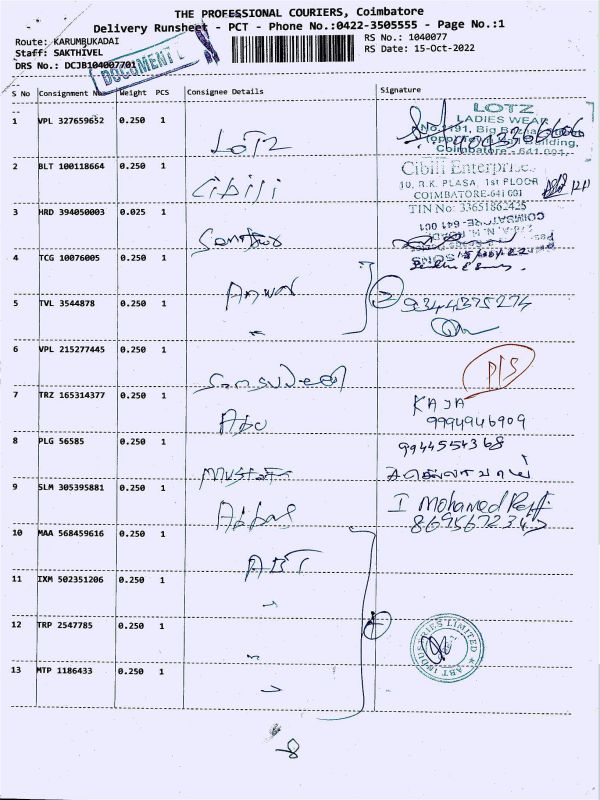 THE PROFESSIONAL COURIERS, Coimbatore
Delivery Runsheet - PCT - Phone No.:0422-3505555 - Page No.:1
Route: KARUMBUKADAI
RS No.: 1040077
Staff: SAKTHIVEL
RS Date: 15-Oct-2022
DRS No.: DCJB104007701
DOCUMENT
S No Consignment No Weight PCS Consignee Details Signature
1 VPL 327659552 0.250 1 LOTZ
LOTZ
LADIES WEAR
2 BLT 100118664 0.250 1 Cibili
Cibili Enterprise
10, R.K. PLASA, 1st FLOOR
COIMBATORE-641 001
TIN No: 33651862425
3 HRD 394050003 0.025 1
COIMBATORE- 641 001
4 TCG 10076005 0.250 1 Anwar
5 TVL 3544878 0.250 1 2 9344375274
6 VPL 215277445 0.250 1
7 TRZ 165314377 0.250 1 Abu KAJA
9994946909
8 PLG 56585 0.250 1 9944554368
9 SLM 305395881 0.250 1 Abbas I Mohamed Raffi
8695672345
10 MAA 568459616 0.250 1 ABT
11 IXM 502351206 0.250 1
12 TRP 2547785 0.250 1 4
ABT INDUSTRIES LIMITED
13 MTP 1186433 0.250 1
8